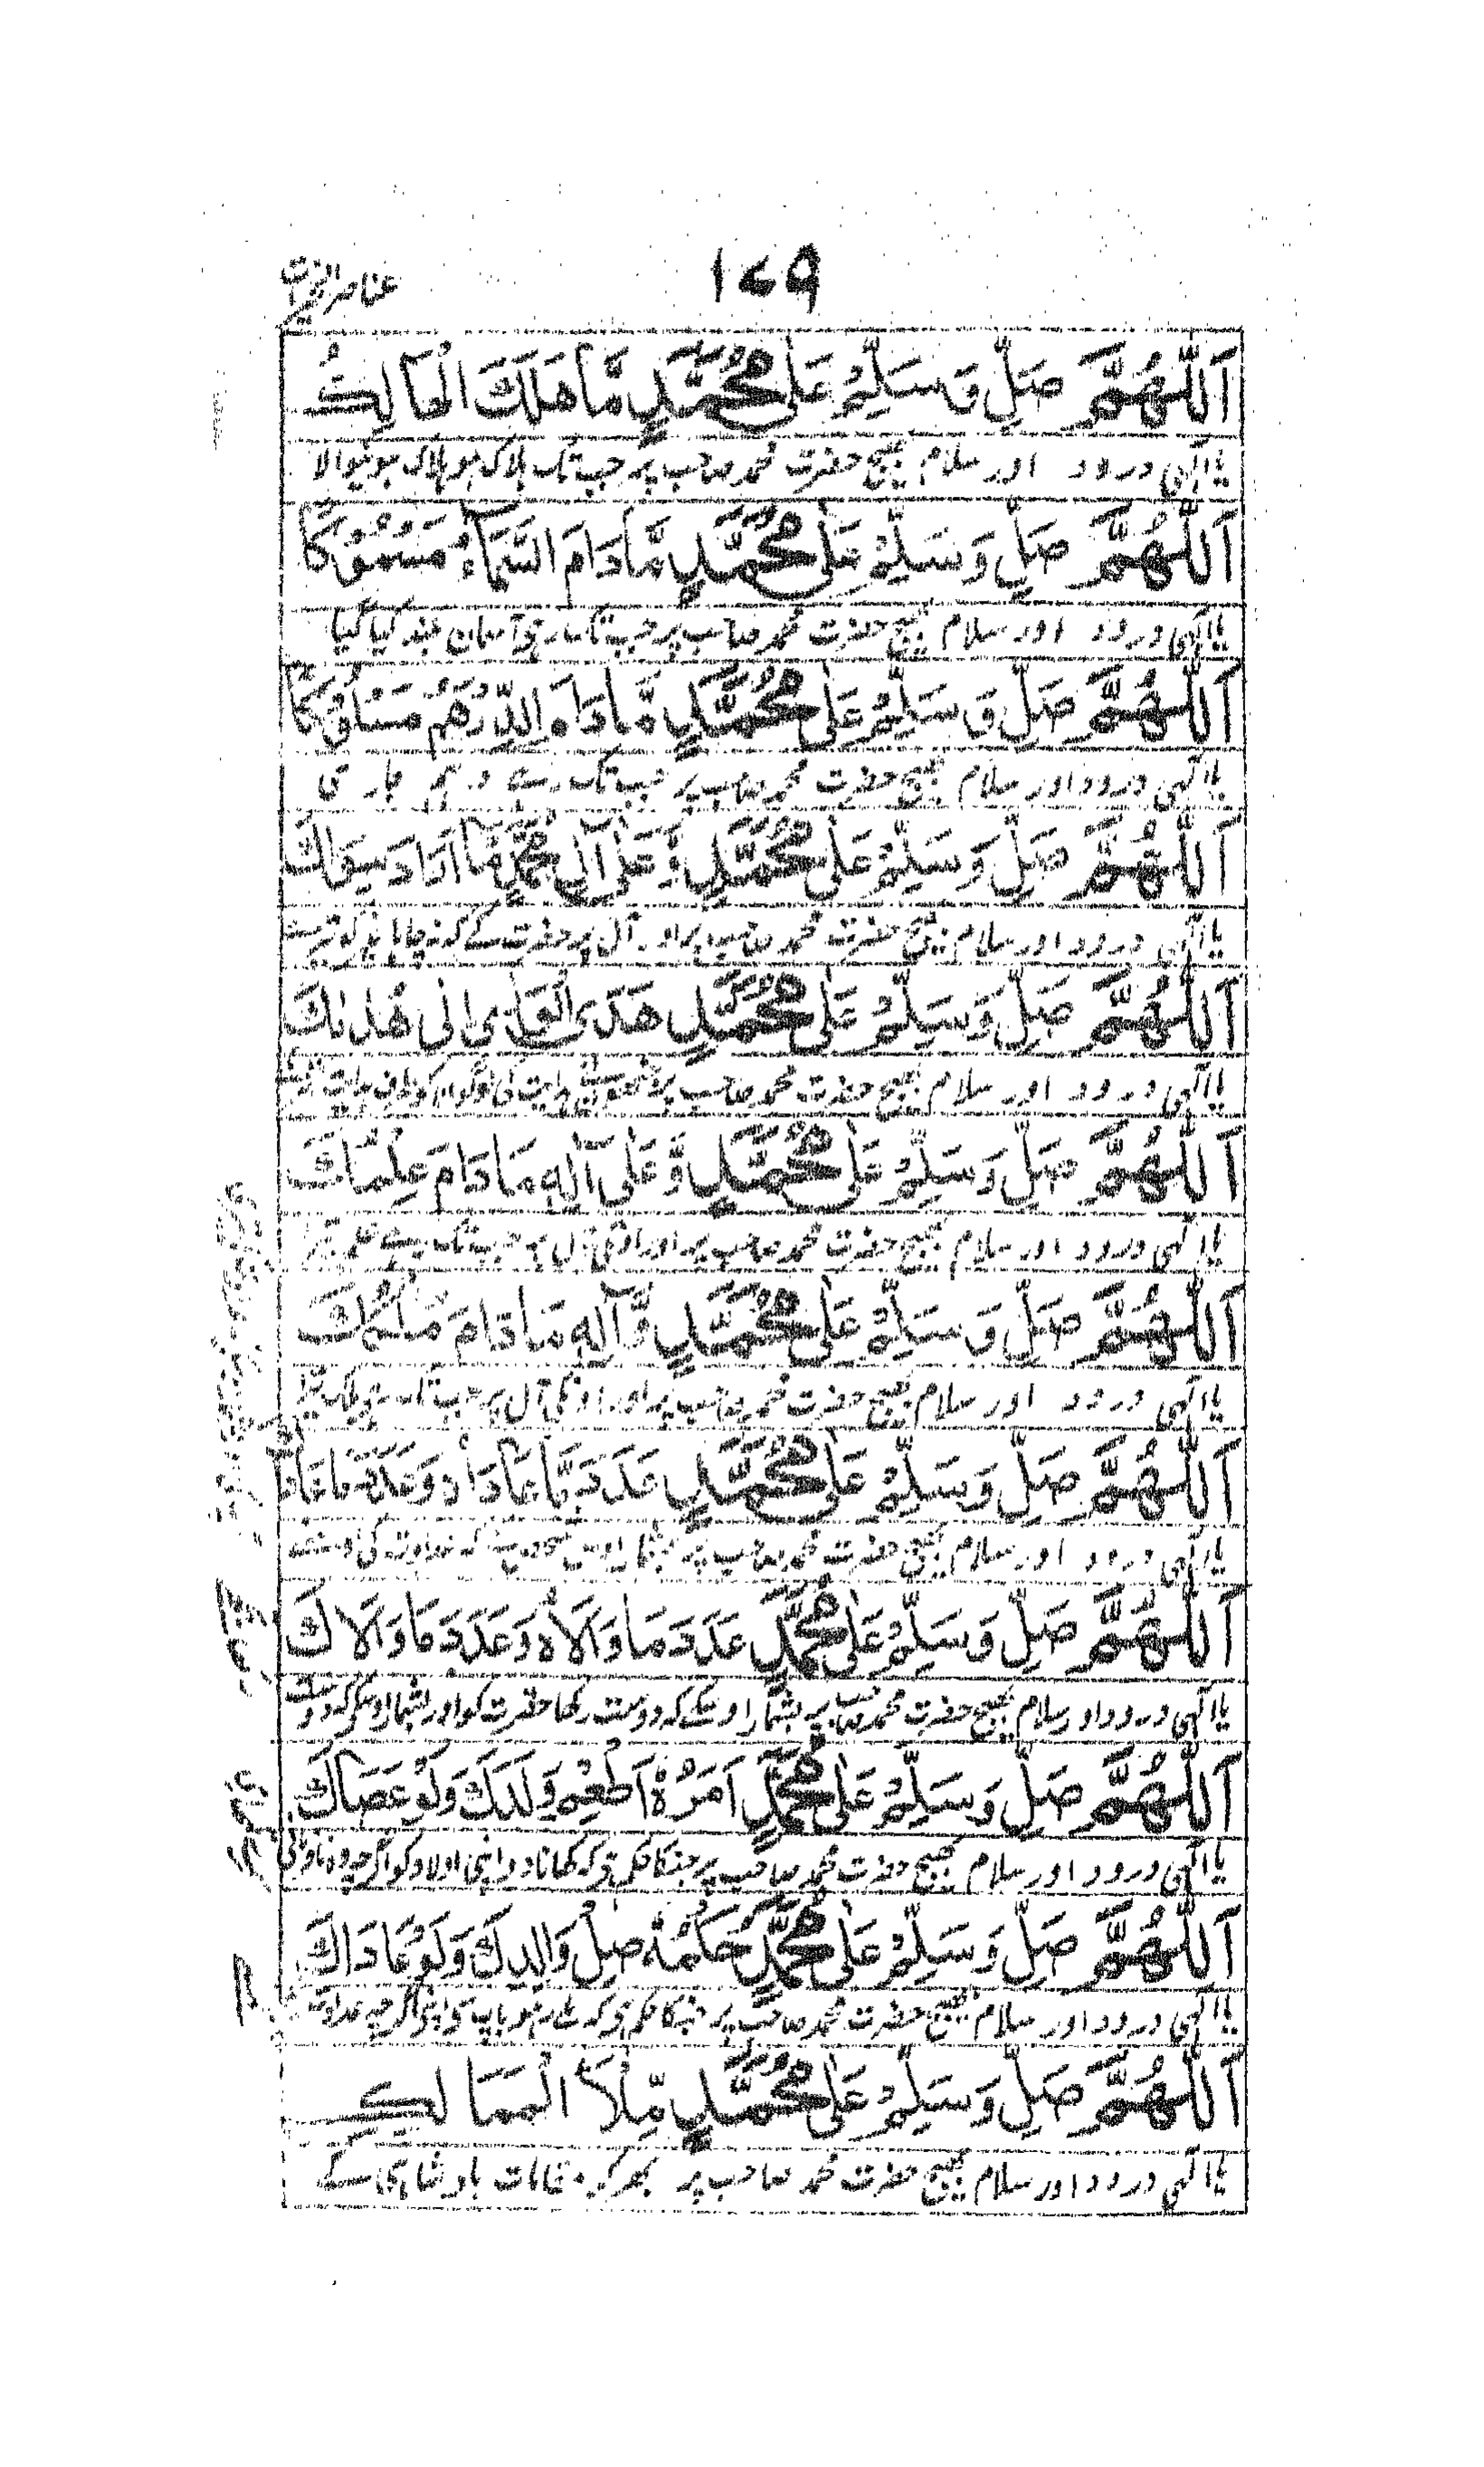 ۱۷۹
عناصر الخیرات
اَللّٰهُمَّ صَلِّ وَسَلِّمْ عَلٰی مُحَمَّدٍ مَّا هَلَكَ الْهَالِكُ
یا الٰہی درود اور سلام بھیج حضرت محمد صاحب پر جب تک ہلاک ہو ہلاک ہونیوالا
اَللّٰهُمَّ صَلِّ وَسَلِّمْ عَلٰی مُحَمَّدٍ مَّادَامَ السَّمَآءُ مَسْمُوْكًا
یا الٰہی درود اور سلام بھیج حضرت محمد صاحب پر جب تک رہی آسمان بلند کیا گیا
اَللّٰهُمَّ صَلِّ وَسَلِّمْ عَلٰی مُحَمَّدٍ مَّادَامَ الدِّرْهَمُ
یا الٰہی درود اور سلام بھیج حضرت محمد صاحب پر جب تک رہے درہم جاری
اَللّٰهُمَّ صَلِّ وَسَلِّمْ عَلٰی مُحَمَّدٍ وَّعَلٰی آلِ مُحَمَّدٍ مَا اَرَادَ سِوَاكَ
یا الٰہی درود اور سلام بھیج حضرت محمد صاحب پر اور آل پر حضرت کے کہ نہ چاہا
اَللّٰهُمَّ صَلِّ وَسَلِّمْ عَلٰی مُحَمَّدٍ هَدَی اِلٰی هُدَاكَ
یا الٰہی درود اور سلام بھیج حضرت محمد صاحب پر
اَللّٰهُمَّ صَلِّ وَسَلِّمْ عَلٰی مُحَمَّدٍ وَّعَلٰی آلِهٖ مَادَامَ عِلْمُكَ
یا الٰہی درود اور سلام بھیج حضرت محمد صاحب پر اور اونکی آل پر جب تک ہے علم تیرا
اَللّٰهُمَّ صَلِّ وَسَلِّمْ عَلٰی مُحَمَّدٍ وَّآلِهٖ مَادَامَ مُلْكُكَ
یا الٰہی درود اور سلام بھیج حضرت محمد صاحب پر اور اونکی آل پر جب تک رہی ملک تیرا
اَللّٰهُمَّ صَلِّ وَسَلِّمْ عَلٰی مُحَمَّدٍ عَدَدَ
یا الٰہی درود اور سلام بھیج حضرت محمد صاحب پر
اَللّٰهُمَّ صَلِّ وَسَلِّمْ عَلٰی مُحَمَّدٍ عَدَدَ مَا وَالَاهُ وَعَدَدَ مَا وَالَاكَ
یا الٰہی درود اور سلام بھیج حضرت محمد صاحب پر بشمار اوسکے کہ دوست رکھا حضرت کو اور بشمار اوسکی کہ دوست
اَللّٰهُمَّ صَلِّ وَسَلِّمْ عَلٰی مُحَمَّدٍ اَمْرُهٗ اَطْعِمْ وَلَدَكَ وَلَوْ عَصَاكَ
یا الٰہی درود اور سلام بھیج حضرت محمد صاحب پر جنکا حکم ہی کہ کھانا دو اپنی اولاد کو اگرچہ وہ
اَللّٰهُمَّ صَلِّ وَسَلِّمْ عَلٰی مُحَمَّدٍ حُكْمُهٗ صِلْ وَالِدَكَ وَلَوْ عَادَاكَ
یا الٰہی درود اور سلام بھیج حضرت محمد صاحب پر جنکا حکم ہی کہ ملے رہو باپ سی اپنی اگرچہ
اَللّٰهُمَّ صَلِّ وَسَلِّمْ عَلٰی مُحَمَّدٍ مِّلْأَ الْمَمَالِكِ
یا الٰہی درود اور سلام بھیج حضرت محمد صاحب پر بھر کر مقامات بادشاہی کے